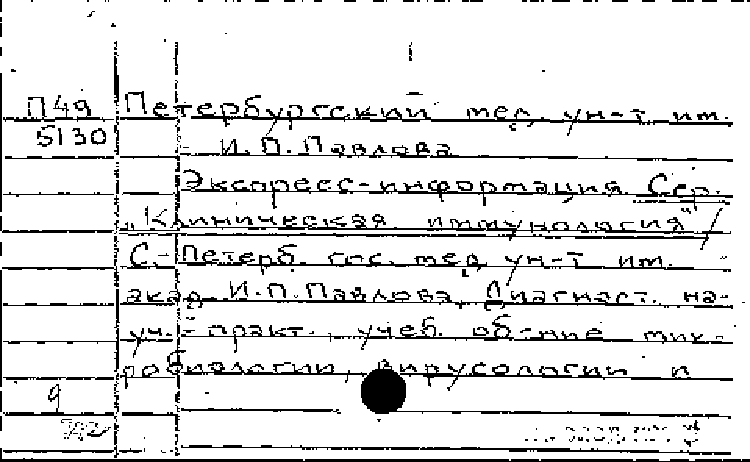 П49 Петербургский мед. ун-т им.
5130 И.П.Павлова
Экспресс-информация. Сер.
„Клиническая иммунология"/
С.-Петерб. гос. мед. ун-т им.
акад. И.П.Павлова, Диагност. на-
уч.-практ., учеб. об-ние мик-
робиологии, вирусологии и
9